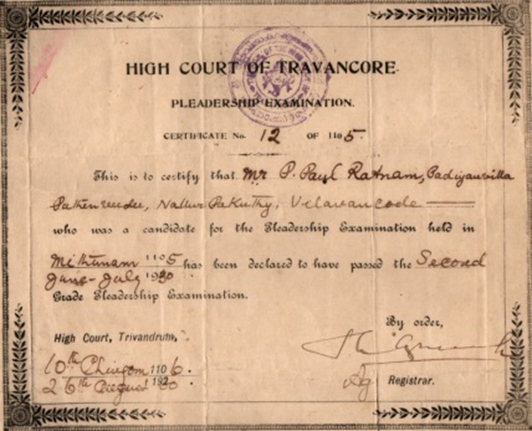 HIGH COURT OF TRAVANCORE.
PLEADERSHIP EXAMINATION.
CERTIFICATE No. 12 OF 1105.
This is to certify that Mr P. Paul Ratnam, Padiyanvilla
Nallur Pakuthy, Vilavancode
who was a candidate for the Pleadership Examination held in
Mithunam 1105 has been declared to have passed the Second
June-July 1930
Grade Pleadership Examination.
By order,
High Court, Trivandrum,
10th Chingom 1106.
26th August 1930
Ag Registrar.